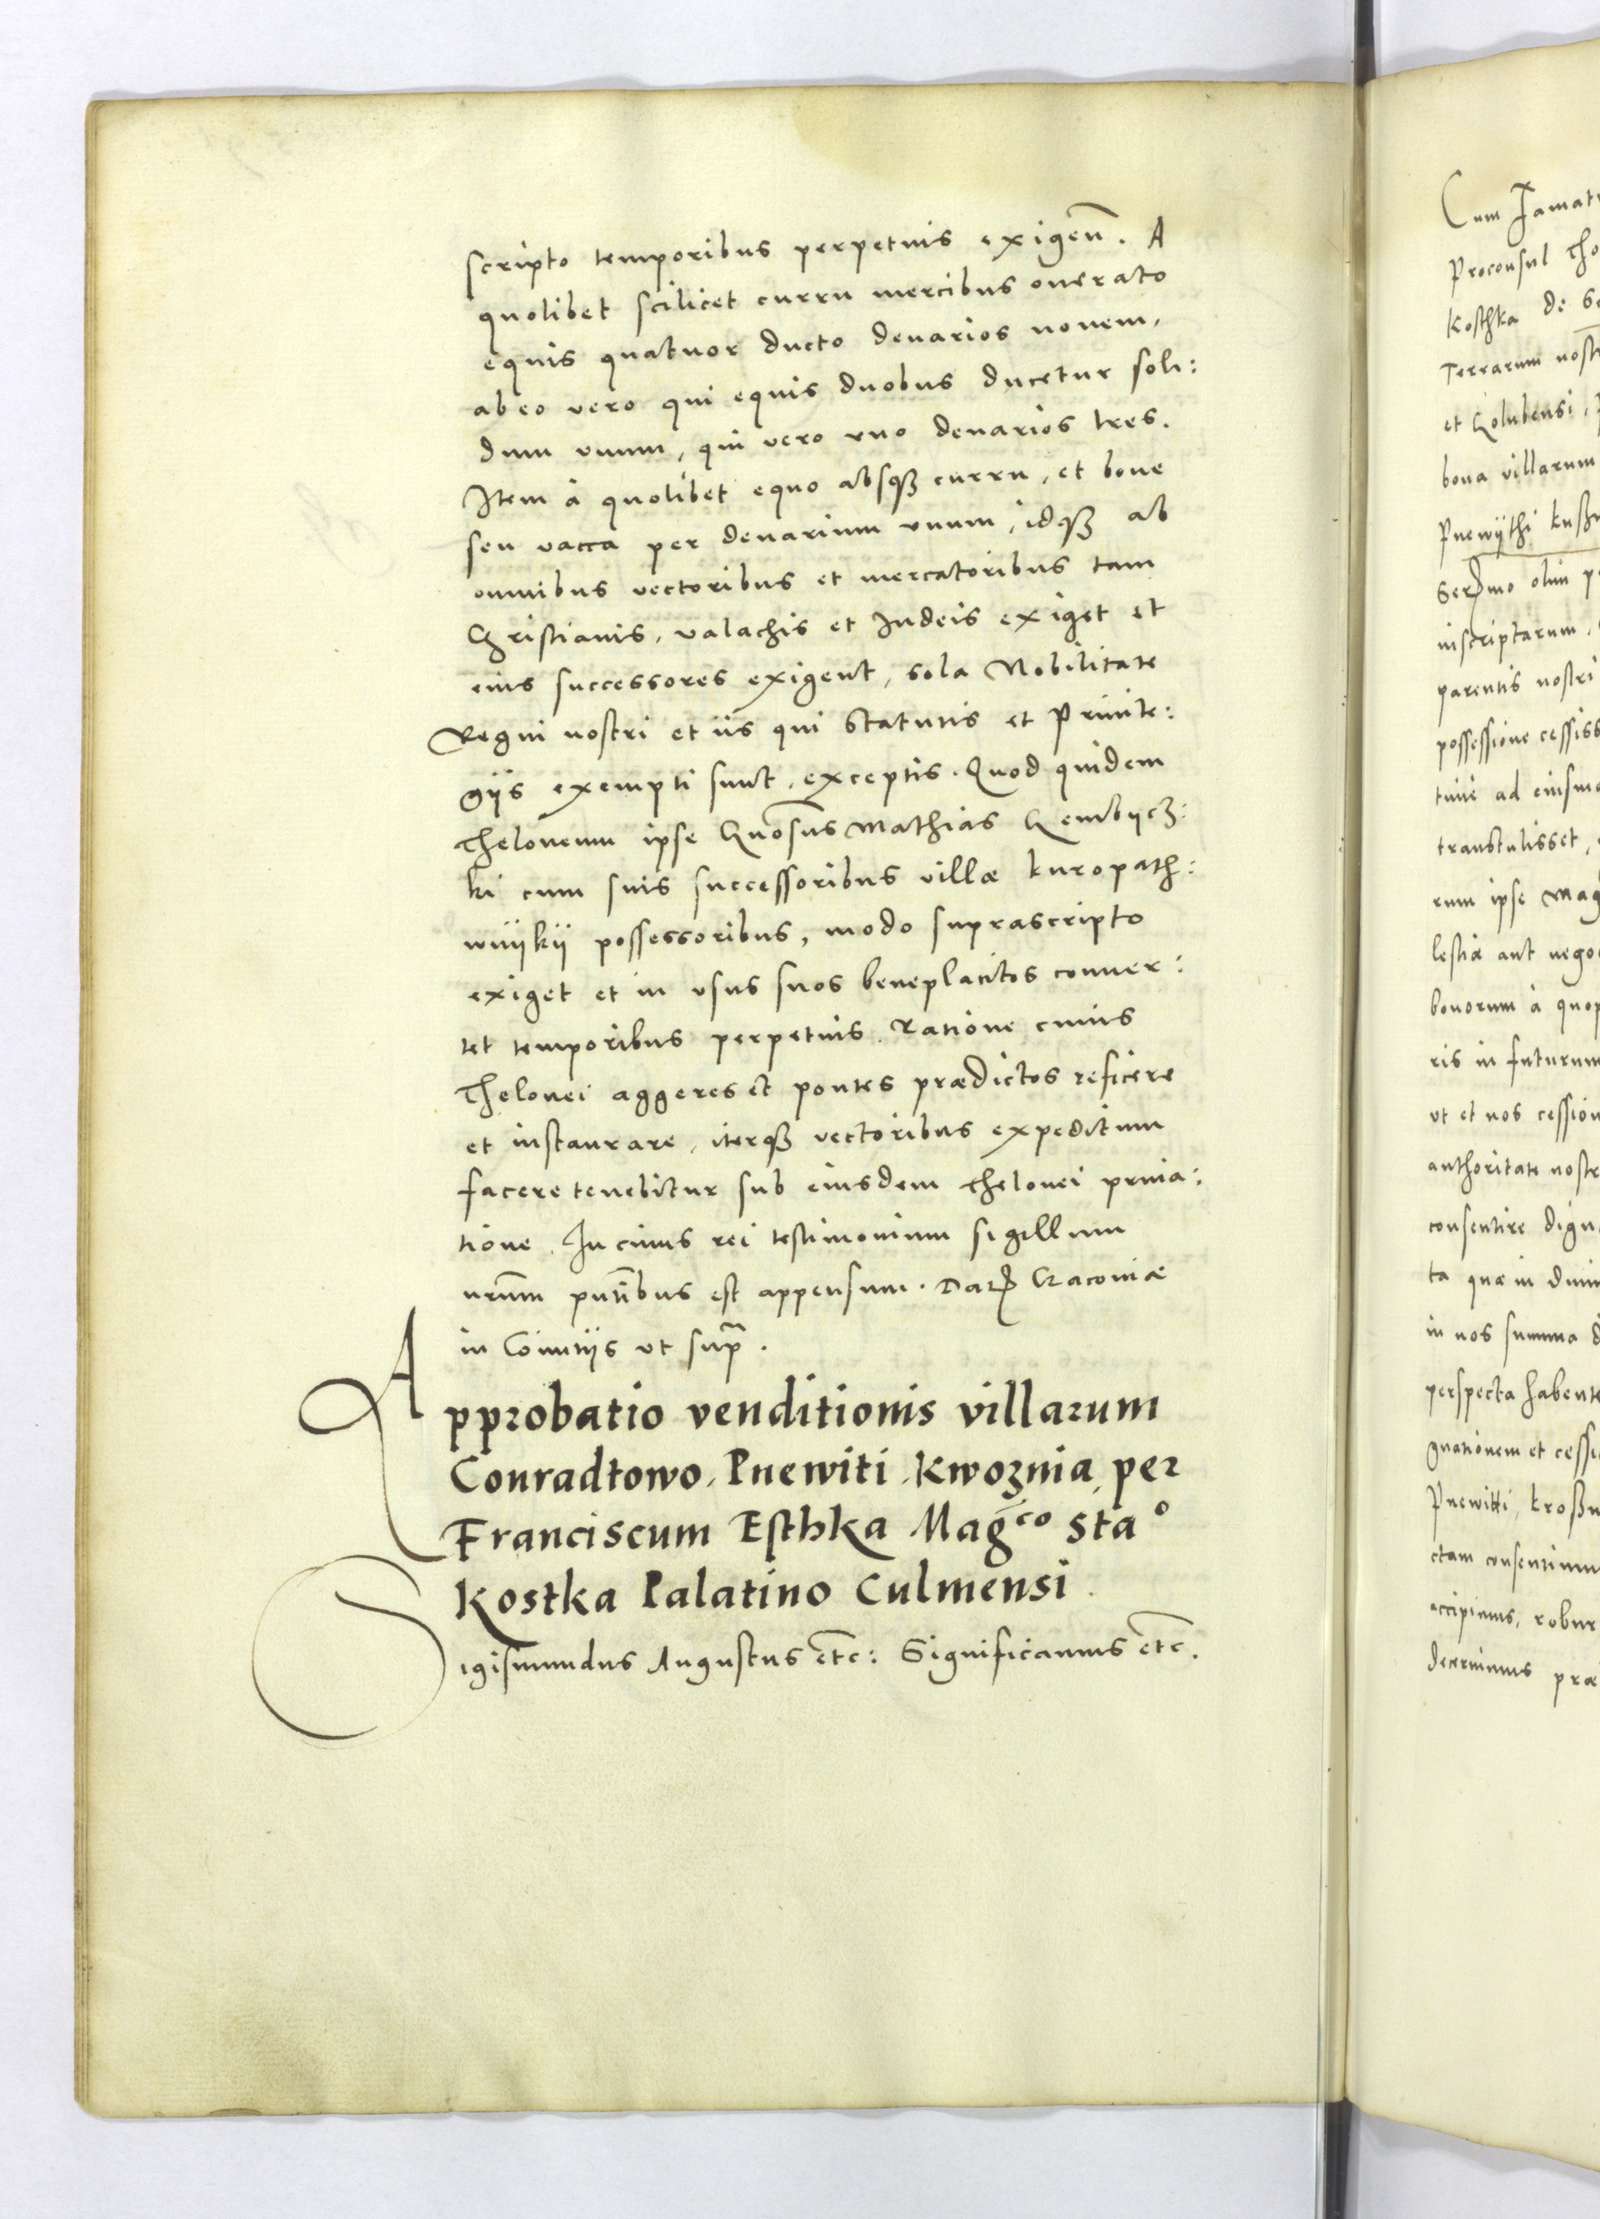 scripto temporibus perpetuis exigeñ. A
quolibet scilicet curru mercibus onerato
equis quatuor ducto denarios novem,
ab eo vero qui equis duobus ducetur soli:
dum unum, qui vero uno denarios tres.
Item à quolibet equo absqꝫ curru, et bove
seu vacca per denarium unum, idqꝫ ab
omnibus vectoribus et mercatoribus tam
Christianis, valachis et Judeis exiget et
eius successores exigent, sola Nobilitate
Regni nostri et iis qui Statutis et Privile:
giis exempti sunt, exceptis. Quod quidem
Theloneum ipse Gñosus Mathias Gembycz:
ki cum suis successoribus villæ kuropath:
wijkij possessoribus, modo suprascripto
exiget et in usus suos beneplacitos conver:
tet temporibus perpetuis. Ratione cuius
Thelonei aggeres et pontes prædictos reficere
et instaurare, iterqꝫ vectoribus expeditum
facere tenebitur sub eiusdem Thelonei priva:
tione. In cuius rei testimonium sigillum
nr̃um pñtibus est appensum. Dat Cracoviæ
in Comitiis ut supr̃.
Approbatio venditionis villarum
Conradtowo, Pnewiti, Kwoznia, per
Franciscum Esthka Mag̃co Sta°
Kostka Palatino Culmensi.
Sigismundus Augustus etc: Significamus etc.
Cum
Proconsul
Kosthka de
Terrarum
et Golubensi,
bona villarum
Pnewijthi
Ser̃mo olim
inscriptarum,
parentis nostri
possessione
ad
transtulisset,
rum ipse
lestiæ aut
bonorum à
ris in futurum
ut et nos
authoritate
consentire
ta quæ in
in nos summa
perspecta
gnationem et
Pnewitti,
ctam
accipimus, robur
decernimus